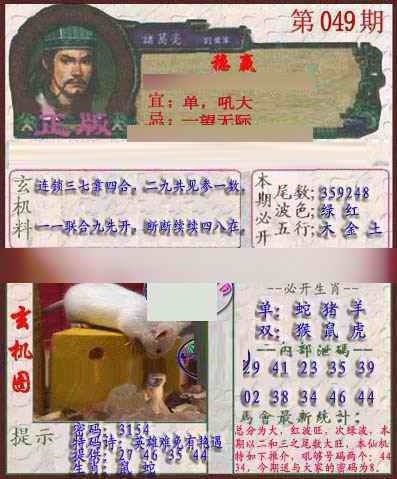 第049期
諸葛亮
稳赢
宜：单，吼大
忌：一望无际
正版
玄机料
连锁三七靠四合。二九共见参一数。
一一联合九先开，断断续续四八在。
本期必开
尾数：359248
波色：绿 红
五行：木 金 土
玄机图
--必开生肖--
单：蛇 猪 羊
双：猴 鼠 虎
--内部泄码--
29 41 23 35 39
02 38 34 46 44
馬會最新統計：
总分为大，红波旺，次绿波，本
期以二和三之尾数大旺，本仙机
特如下推介，吼够号码两个：44
34，今期送与大家的密码为8。
提示
密码：3154
特码诗：英雄难免有艳遇
提供：27 46 35 44
生肖：鼠 蛇